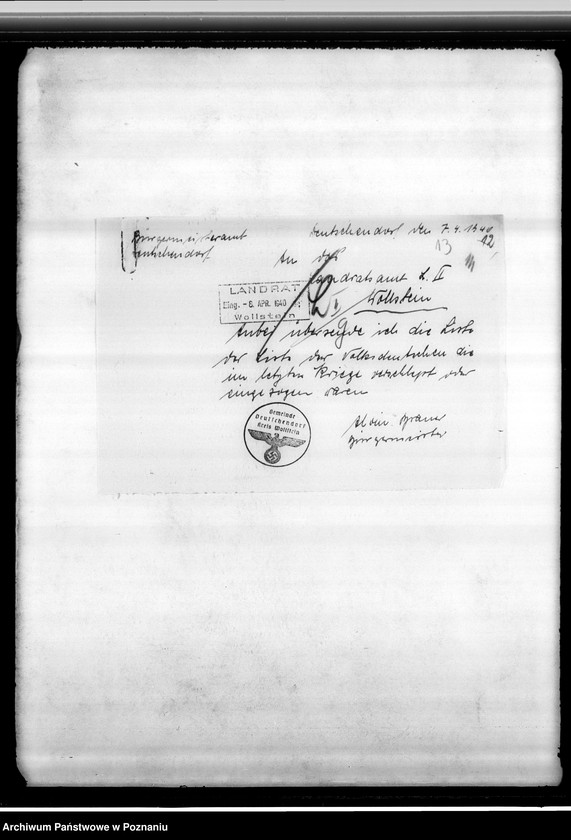 Bürgermeisteramt
Deutschendorf
Deutschendorf, den 7.4.1940
13
12
An das
Landratsamt L. II
Wollstein
LANDRAT
Eing. - 8. APR. 1940
Wollstein
Anbei übersende ich die Liste
der Liste der Volksdeutschen die
im letzten Kriege verschleppt oder
eingezogen waren
Gemeinde
Deutschendorf
Kreis Wollstein
Albin
Bürgermeister
Archiwum Państwowe w Poznaniu